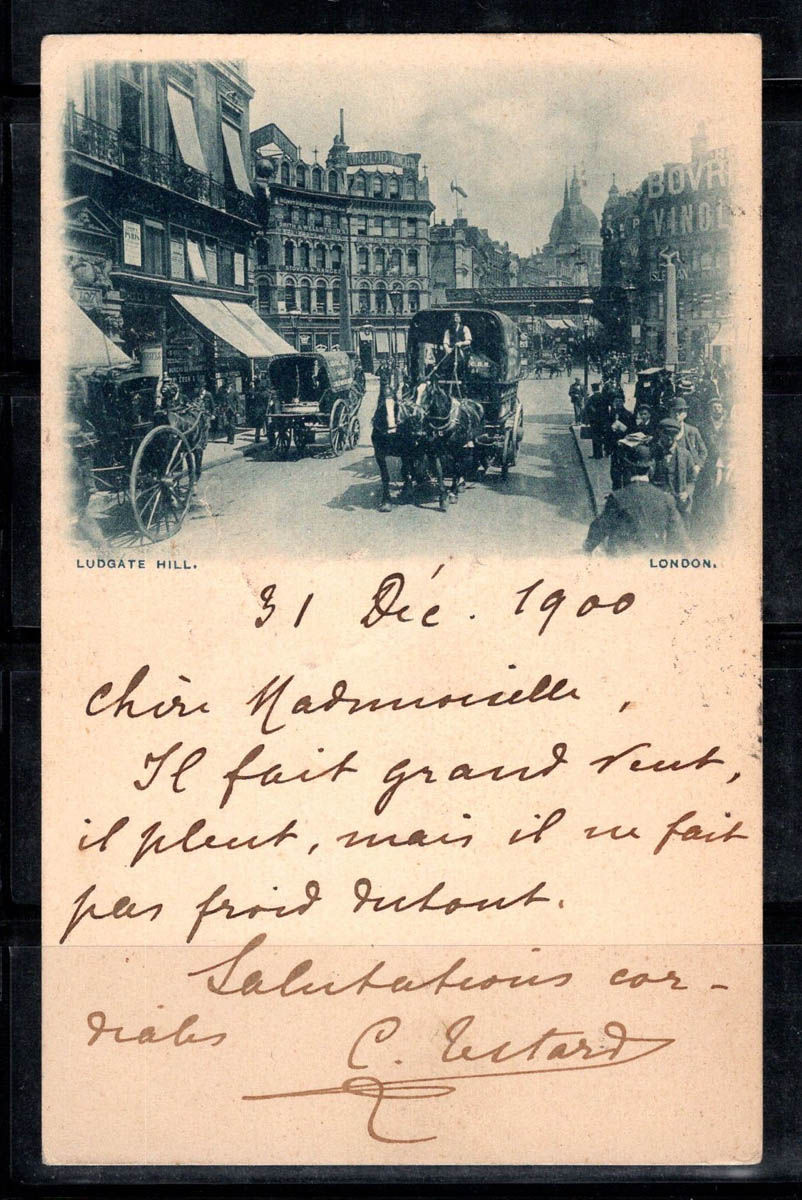 BOVR
VINOL
LUDGATE HILL.
LONDON.
31 Déc. 1900
Chère Mademoiselle,
Il fait grand vent,
il pleut, mais il ne fait
pas froid dutout.
Salutations cor-
diales
C. Testard